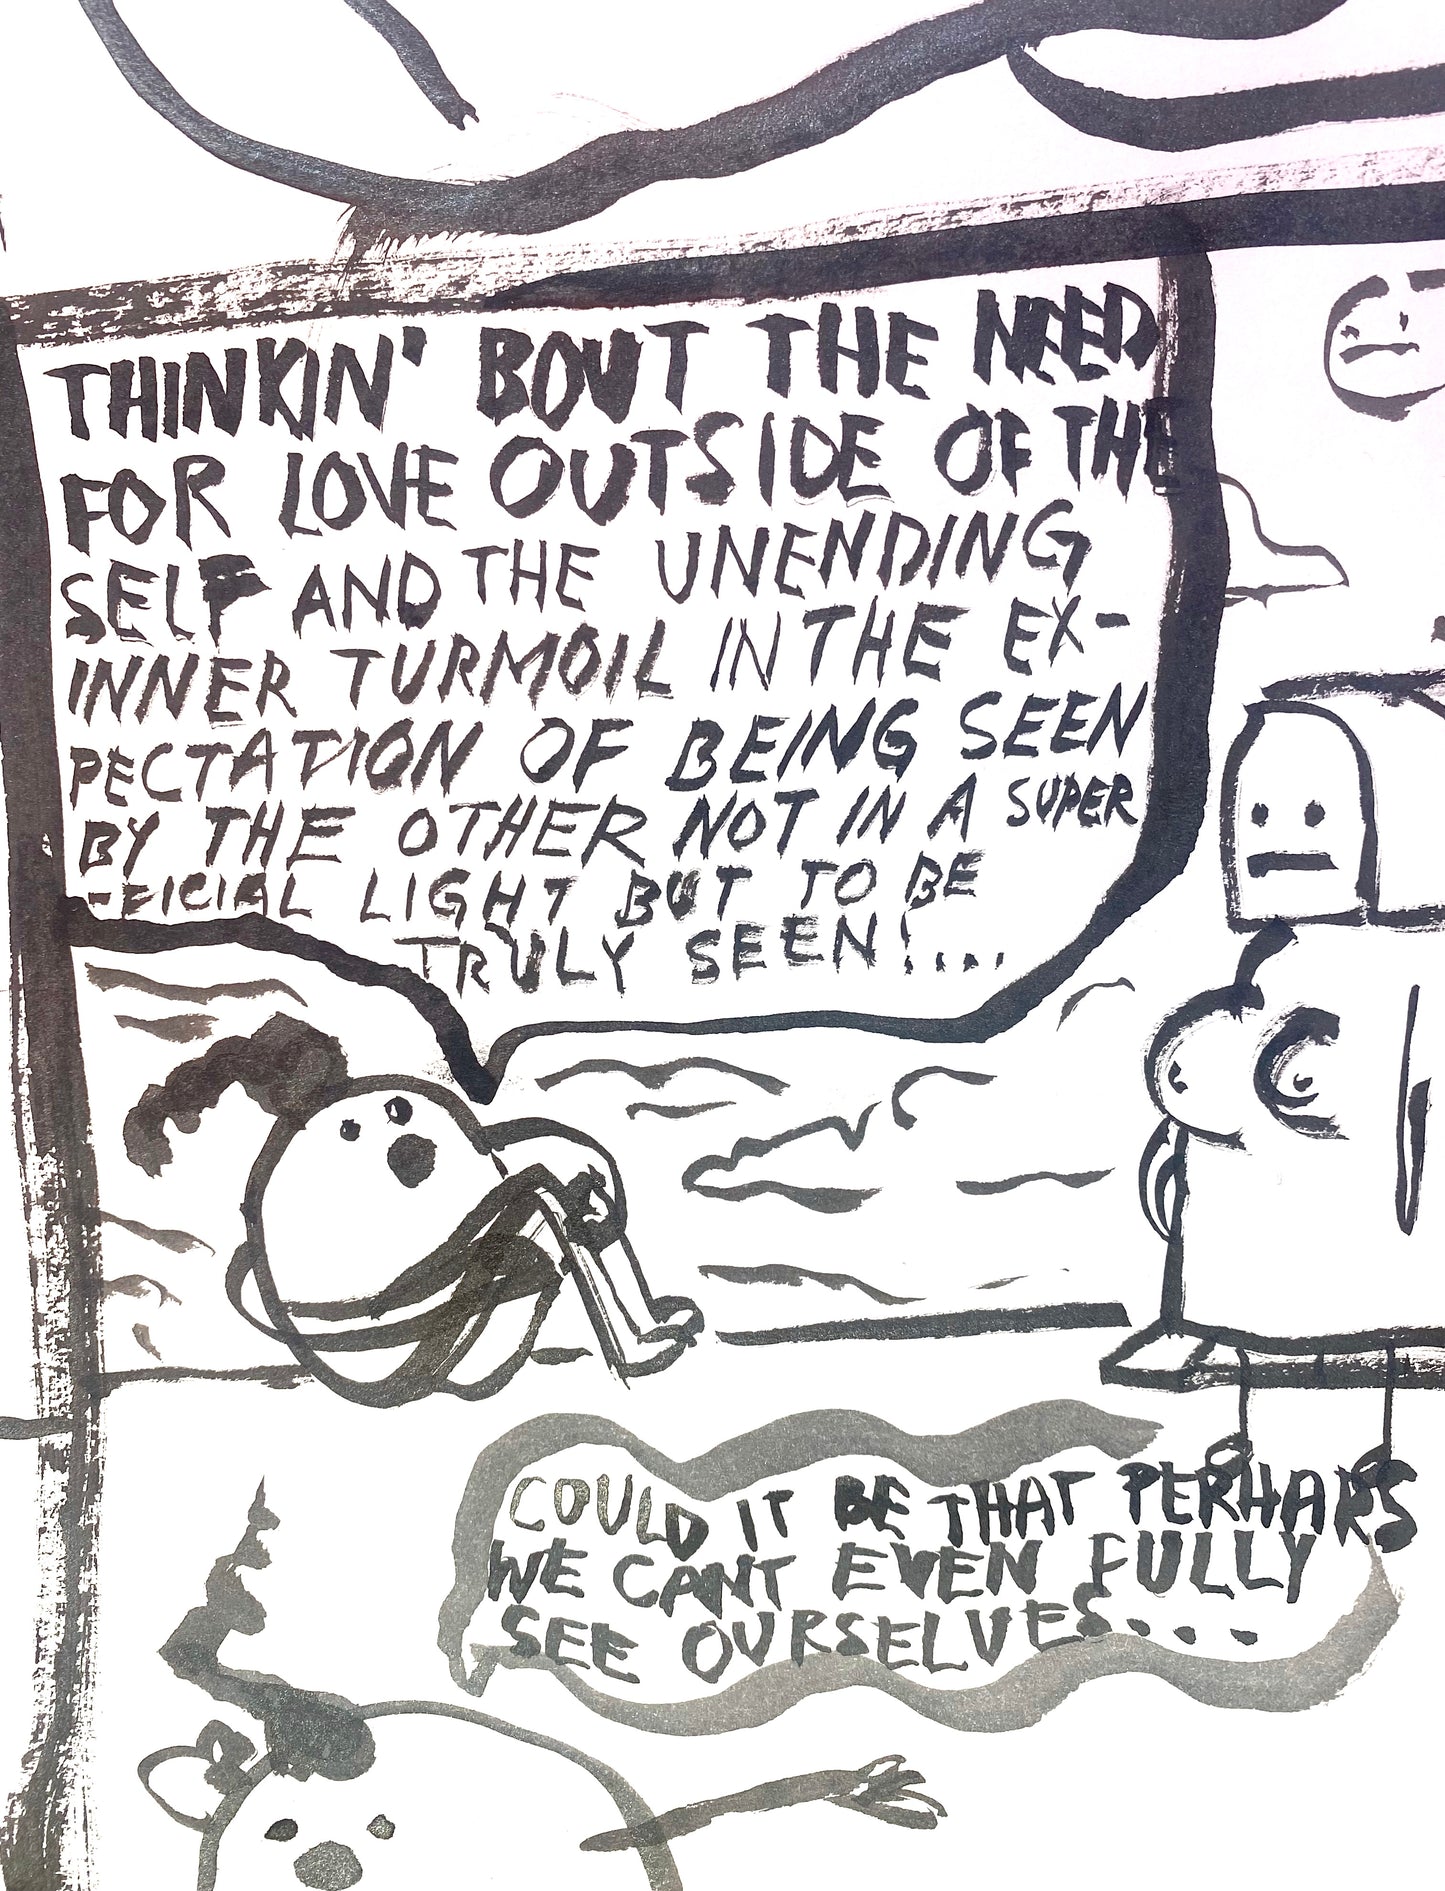 THINKIN' BOUT THE NEED
FOR LOVE OUTSIDE OF THE
SELF AND THE UNENDING
INNER TURMOIL IN THE EX-
PECTATION OF BEING SEEN
BY THE OTHER NOT IN A SUPER
-FICIAL LIGHT BUT TO BE
TRULY SEEN!....
COULD IT BE THAT PERHAPS
WE CANT EVEN FULLY
SEE OURSELVES...